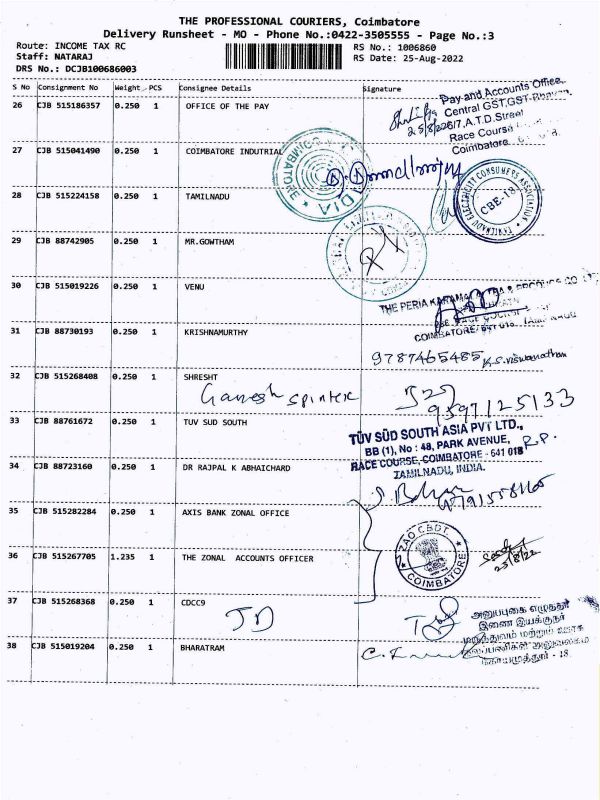 THE PROFESSIONAL COURIERS, Coimbatore
Delivery Runsheet - MO - Phone No.:0422-3505555 - Page No.:3
Route: INCOME TAX RC
Staff: NATARAJ
DRS No.: DCJB100686003
RS No.: 1006860
RS Date: 25-Aug-2022
S No Consignment No Weight PCS Consignee Details Signature
26 CJB 515186357 0.250 1 OFFICE OF THE PAY
Pay and Accounts Office,
Central GST,GST Bhavan,
25/8/22 6/7,A.T.D.Street
Race Course
Coimbatore
27 CJB 515041490 0.250 1 COIMBATORE INDUTRIAL
COIMBATORE
INDIA
28 CJB 515224158 0.250 1 TAMILNADU
TAMILNADU ELECTRICITY CONSUMERS ASSOCIATION
CBE-18
29 CJB 88742905 0.250 1 MR.GOWTHAM
30 CJB 515019226 0.250 1 VENU
THE PERIA KARAMALAI TEA & PRODUCE CO LTD
COIMBATORE
31 CJB 88730193 0.250 1 KRISHNAMURTHY
9787465485 K.S.Viswanathan
32 CJB 515268408 0.250 1 SHRESHT
Ganesh Spintex
9597125133
33 CJB 88761672 0.250 1 TUV SUD SOUTH
TÜV SÜD SOUTH ASIA PVT LTD.,
BB (1), No : 48, PARK AVENUE,
RACE COURSE, COIMBATORE - 641 018
TAMILNADU, INDIA.
R.P.
34 CJB 88723160 0.250 1 DR RAJPAL K ABHAICHARD
35 CJB 515282284 0.250 1 AXIS BANK ZONAL OFFICE
ZAO CBDT
COIMBATORE
36 CJB 515267705 1.235 1 THE ZONAL ACCOUNTS OFFICER
25/8/22
37 CJB 515268368 0.250 1 CDCC9
JD
அனுப்புகை எழுத்தர்
இணை இயக்குநர்
மருத்துவம் மற்றும் ஊரக
நலப்பணிகள் அலுவலகம்
கோயமுத்தூர் - 18.
38 CJB 515019204 0.250 1 BHARATRAM